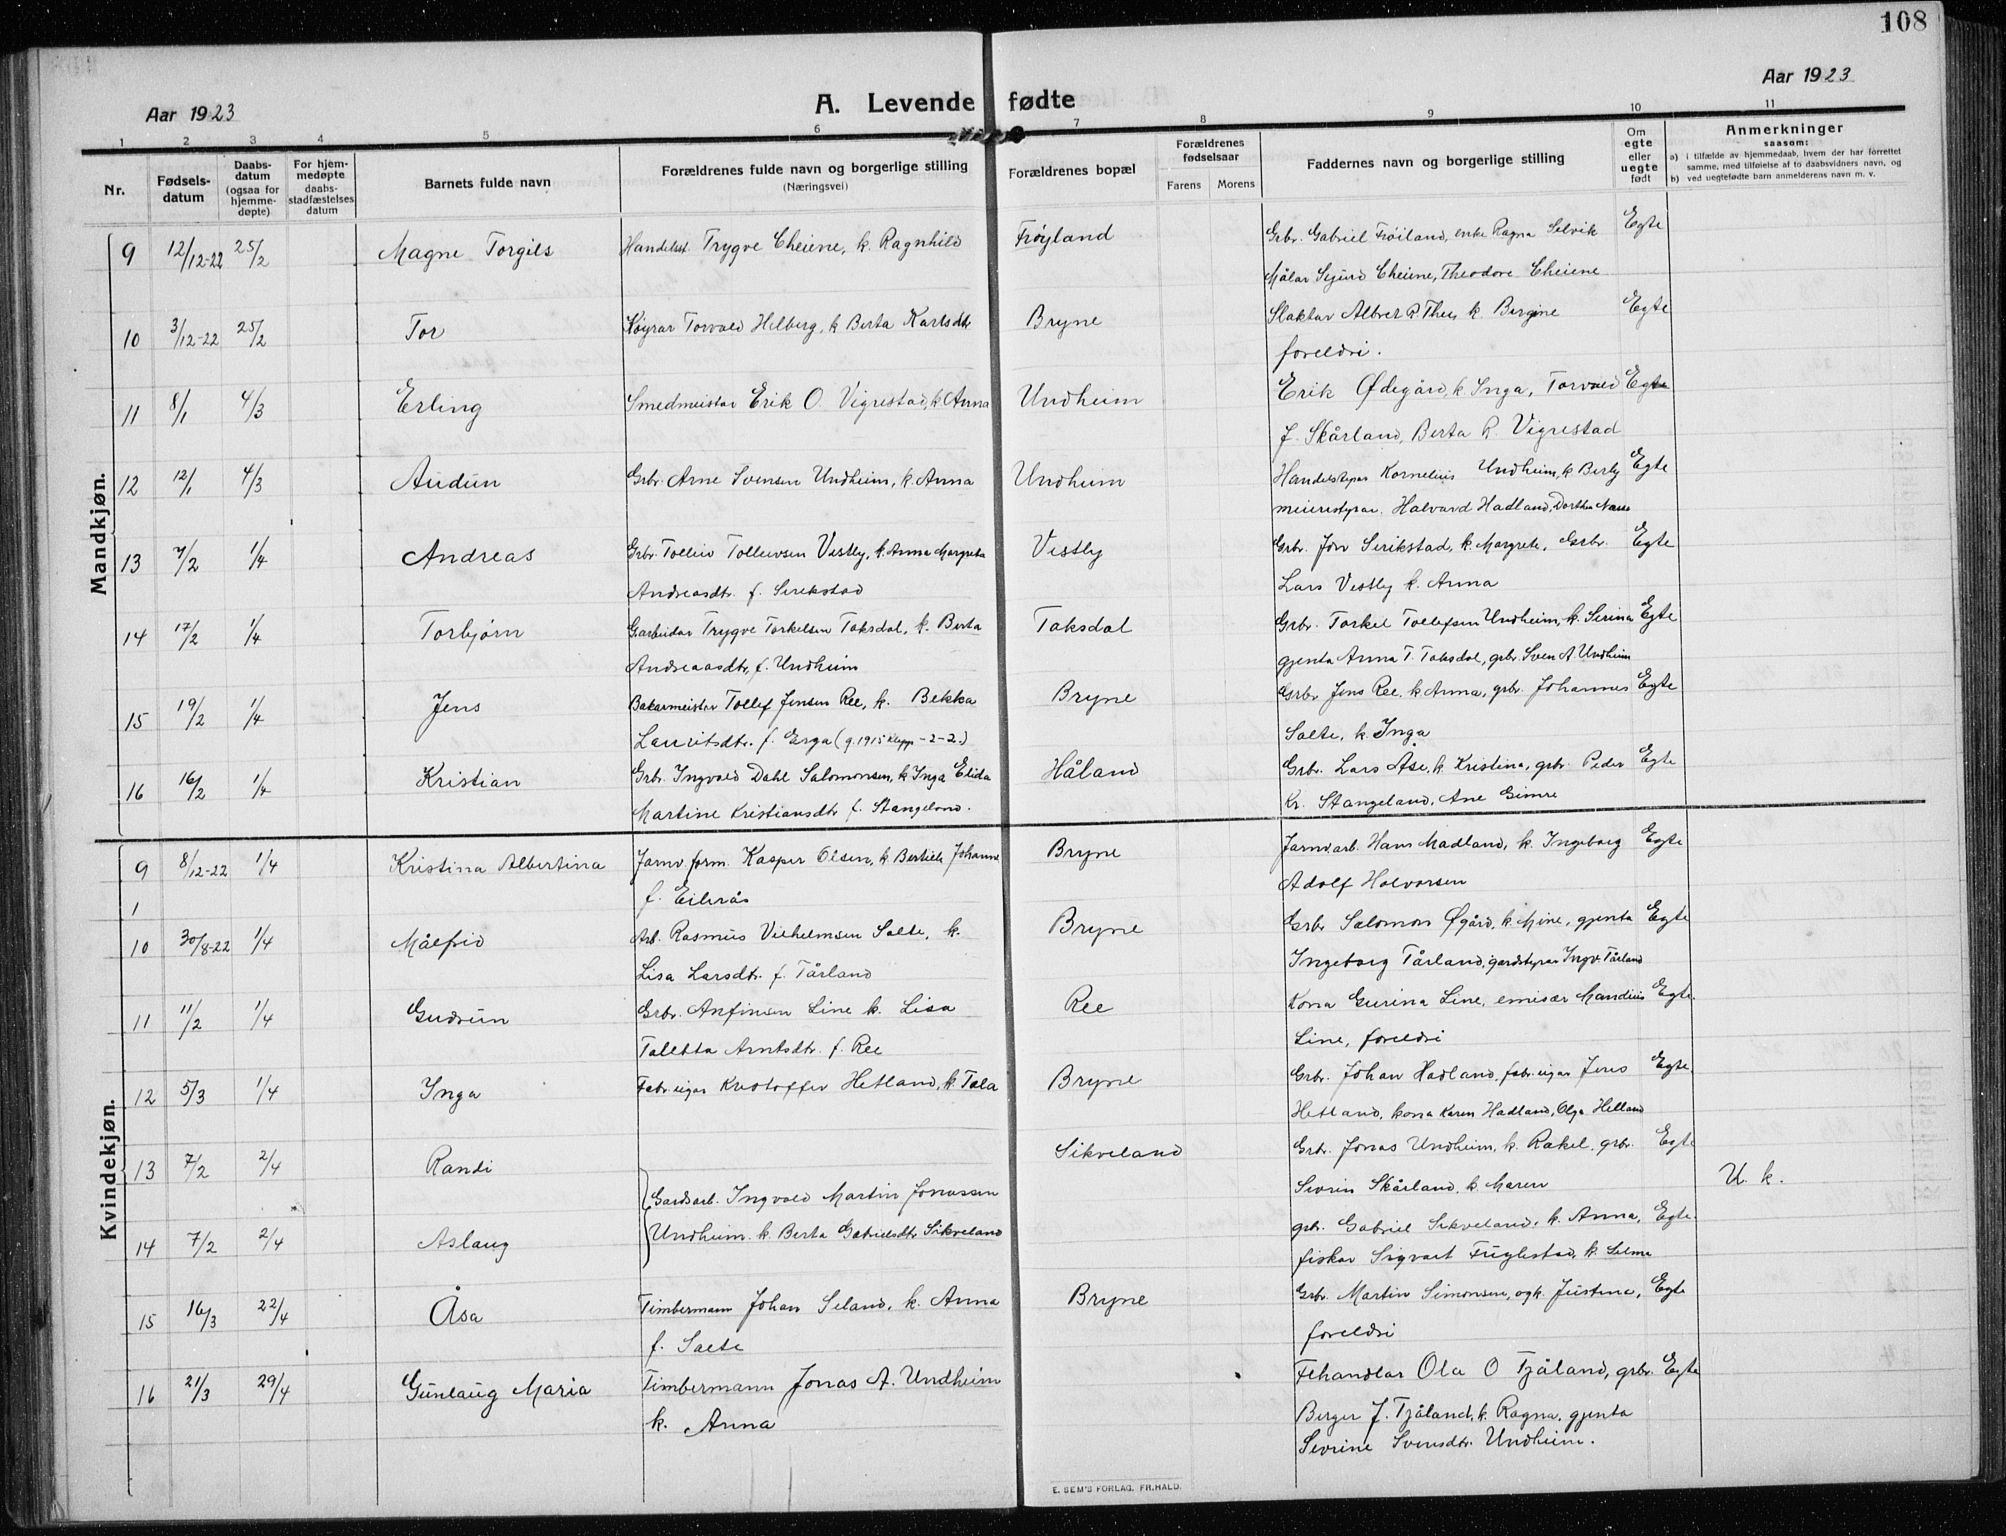 108
Aar 1923
A. Levende fødte
Aar 1923
1 2 3 4 5 6 7 8 9 10 11
Nr.
Fødselsdatum
Daabsdatum (ogsaa for hjemmedøpte)
For hjemmedøpte daabsstadfæstelses datum
Barnets fulde navn
Forældrenes fulde navn og borgerlige stilling (Næringsvei)
Forældrenes bopæl
Forældrenes fødselsaar
Farens Morens
Faddernes navn og borgerlige stilling
Om egte eller uegte født
Anmerkninger
saasom:
a) i tilfælde av hjemmedaab, hvem der har forrettet samme, med tilføielse af to daabsvidners navn, og
b) ved uegtefødte barn anmelderens navn m. v.
Mandkjøn.
9 12/12-22 25/2 Magne Torgils Handelsst. Trygve Cheiene, k. Ragnhild Frøyland Grbr. Gabriel Frøiland, enke Ragna Selvik Egte
Målar Sigurd Cheiene, Theodore Cheiene
10 3/12-22 25/2 Tor Køyrar Torvald Helberg, k Berta Karlsdtr Bryne Slaktar Albret R. Thu, k. Bergine Egte
foreldri.
11 8/1 4/3 Erling Smedmeistar Erik O. Vigrestad, k Anna Undheim Erik Ødegård, k. Inga, Torvald Egte
J. Skårland, Berta R. Vigrestad
12 12/1 4/3 Audun Grbr. Arne Svensen Undheim, k. Anna Undheim Handelstyrar Kornelius Undheim, k Berty Egte
meieristyrar. Halvard Hadland, Dorthea Næss
13 7/2 1/4 Andreas Grbr. Tolleiv Tolleivsen Vestly, k. Anna Margreta Vestly Grbr. Jon Serikstad, k. Margrete, Grbr. Egte
Andreasdtr. f. Serikstad Lars Vestly k. Anna
14 17/2 1/4 Torbjørn Garbeidar Trygve Torkelsen Taksdal, k. Berta Taksdal Grbr. Torkel Tollefsen Undheim, k. Serina Egte
Andreaasdtr, f. Undheim gjenta Anna T. Taksdal, grbr. Sven A. Undheim
15 19/2 1/4 Jens Bakarmeister Tollef Jensen Ree, k. Bekka Bryne Grbr Jens Ree, k Anna, grbr. Johannes Egte
Lauritsdtr. f. Erga (g. 1915 Klepp -2-2.) Salte, k. Inga
16 16/2 1/4 Kristian Grbr. Ingvald Dahl Salomonsen, k Inga Elida Håland Grbr. Lars Åse, k Kristina, grbr. Peder Egte
Martine Kristiansdtr f. Stangeland. Kr. Stangeland, Ane Gimre
Kvindekjøn.
9 8/12-22 1/4 Kristina Albertina Jarnv.form. Kasper Olsen, k Bertine Johanne Bryne Jarnv.arb. Hans Madland, k. Ingeborg Egte
1 f. Eikrås Adolf Halvorsen
10 30/8-22 1/4 Målfrid Arb. Rasmus Vilhelmsen Salte, k. Bryne Grbr Salomon Øgård, k Mine, gjenta Egte
Lisa Larsdtr. f. Tårland Ingeborg Tårland, gardstyrar Ingv. Tårland
11 11/2 1/4 Gudrun Grbr. Anfinsen Line k. Lisa Ree Kona Gurina Line, emisær Mandius Egte.
Taletta Arntsdtr. f. Ree Line, foreldri
12 5/3 1/4 Inga Fabr.eigar Kristoffer Hetland, k. Tala Bryne Grbr. Johan Hadland, fabr.eigar Jens Egte.
Hetland, kona Karen Hadland, Olga Helland
13 7/2 2/4 Randi Sikveland Grbr. Jonas Undheim, k. Rakel, grbr. Egte
Gardsarb. Ingvald Martin Jonassen Sivrin Skårland, k. Maren U. k.
14 7/2 2/4 Aslaug Undheim. k. Berta Gabrielsdtr Sikveland grb. Gabriel Sikveland, k. Anna, Egte.
fiskar Sigvart Fuglestad, k. Selma
15 16/3 22/4 Åsa Timbermann Johan Seland, k. Anna Bryne Grbr. Martin Simonsen, og k. Justina, Egte
f. Salte foreldri
16 21/3 29/4 Gunlaug Maria Timbermann Jonas A. Undheim Fehandlar Ola O Tjåland, grbr. Egte
k. Anna Berger J. Tjåland, k. Ragna, gjenta
Sivrine Svensdtr. Undheim.
E. SEM'S FORLAG, FR.HALD.